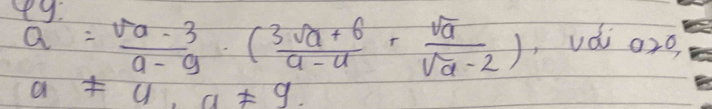 Q = \frac{\sqrt{a} - 3}{a - 9} \cdot \left( \frac{3\sqrt{a} + 6}{a - 4} + \frac{\sqrt{a}}{\sqrt{a} - 2} \right), với a ≥ 0,
a ≠ 4, a ≠ 9.